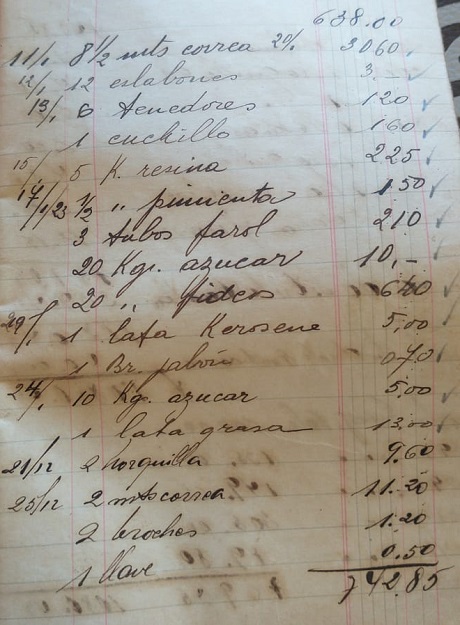 638.00
11/1 8 1/2 mts correa 20/. 3060
12/1 12 eslabones 3.-
13/1 6 tenedores 120
1 cuchillo 160
15/1 5 K. resina 225
17/1/23 1/2 " pimienta 150
3 tubos farol 210
20 Kgr. azucar 10,-
20 " fideos 640
20/1 1 lata Kerosene 5,00
1 Br. jabón 070
24/1 10 Kg. azucar 5,00
1 lata grasa 13,00
21/12 2 horquilla 9.60
25/12 2 mts correa 11.20
2 broches 1.20
1 llave 0.50
742.85